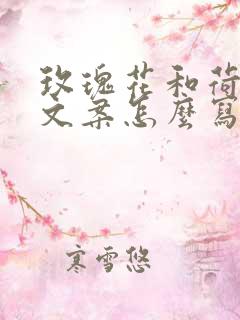 玫瑰花和荷
文案怎麼寫
寒雪悠